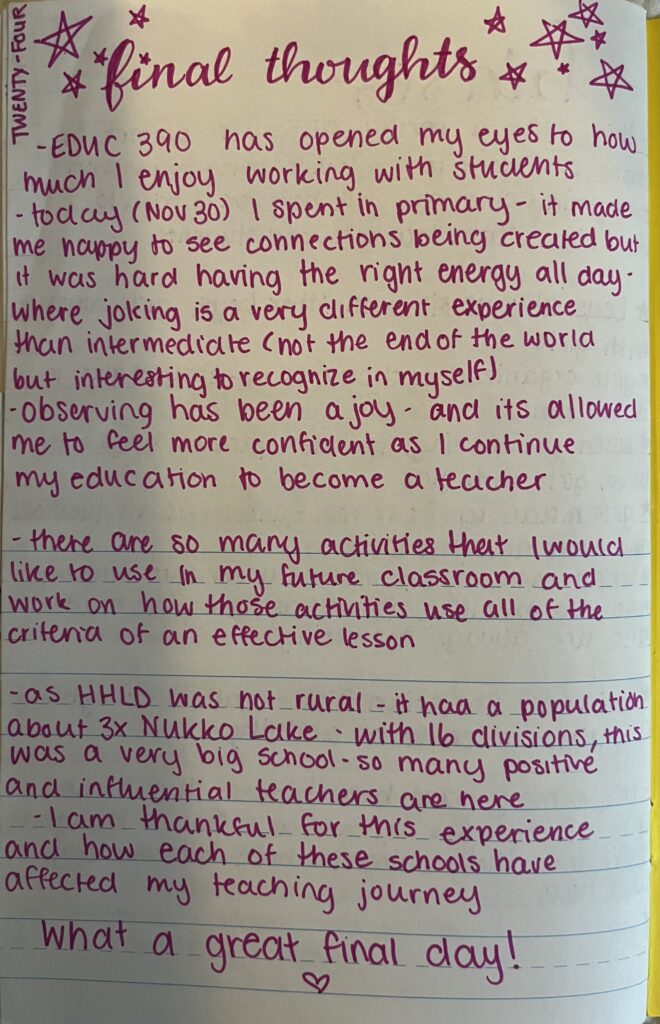 TWENTY-FOUR
final thoughts
-EDUC 390 has opened my eyes to how
much I enjoy working with students
-today (Nov 30) I spent in primary - it made
me happy to see connections being created but
it was hard having the right energy all day-
where joking is a very different experience
than intermediate (not the end of the world
but interesting to recognize in myself)
-observing has been a joy - and its allowed
me to feel more confident as I continue
my education to become a teacher
-there are so many activities that I would
like to use in my future classroom and
work on how those activities use all of the
criteria of an effective lesson
-as HHLD was not rural - it had a population
about 3x Nukko Lake - with 16 divisions, this
was a very big school - so many positive
and influential teachers are here
-I am thankful for this experience
and how each of these schools have
affected my teaching journey
what a great final day!